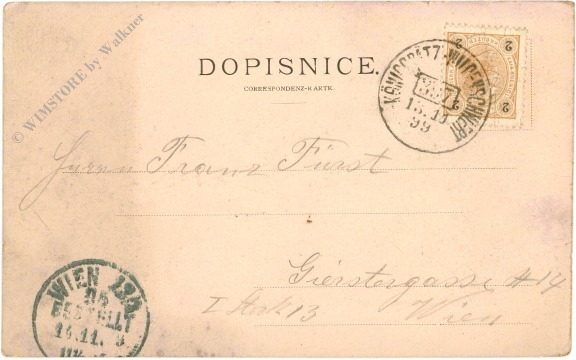 © WIMSTORE by Walkner
DOPISNICE.
CORRESPONDENZ-KARTE.
KÖNIGGRÄTZ-WILDENSCHWERT
13.11
99
2 2
2 2
Herrn Franz Fürst
Gierstergasse #14
I Stock 13 Wien
WIEN
BESTELLT
14.11. 9